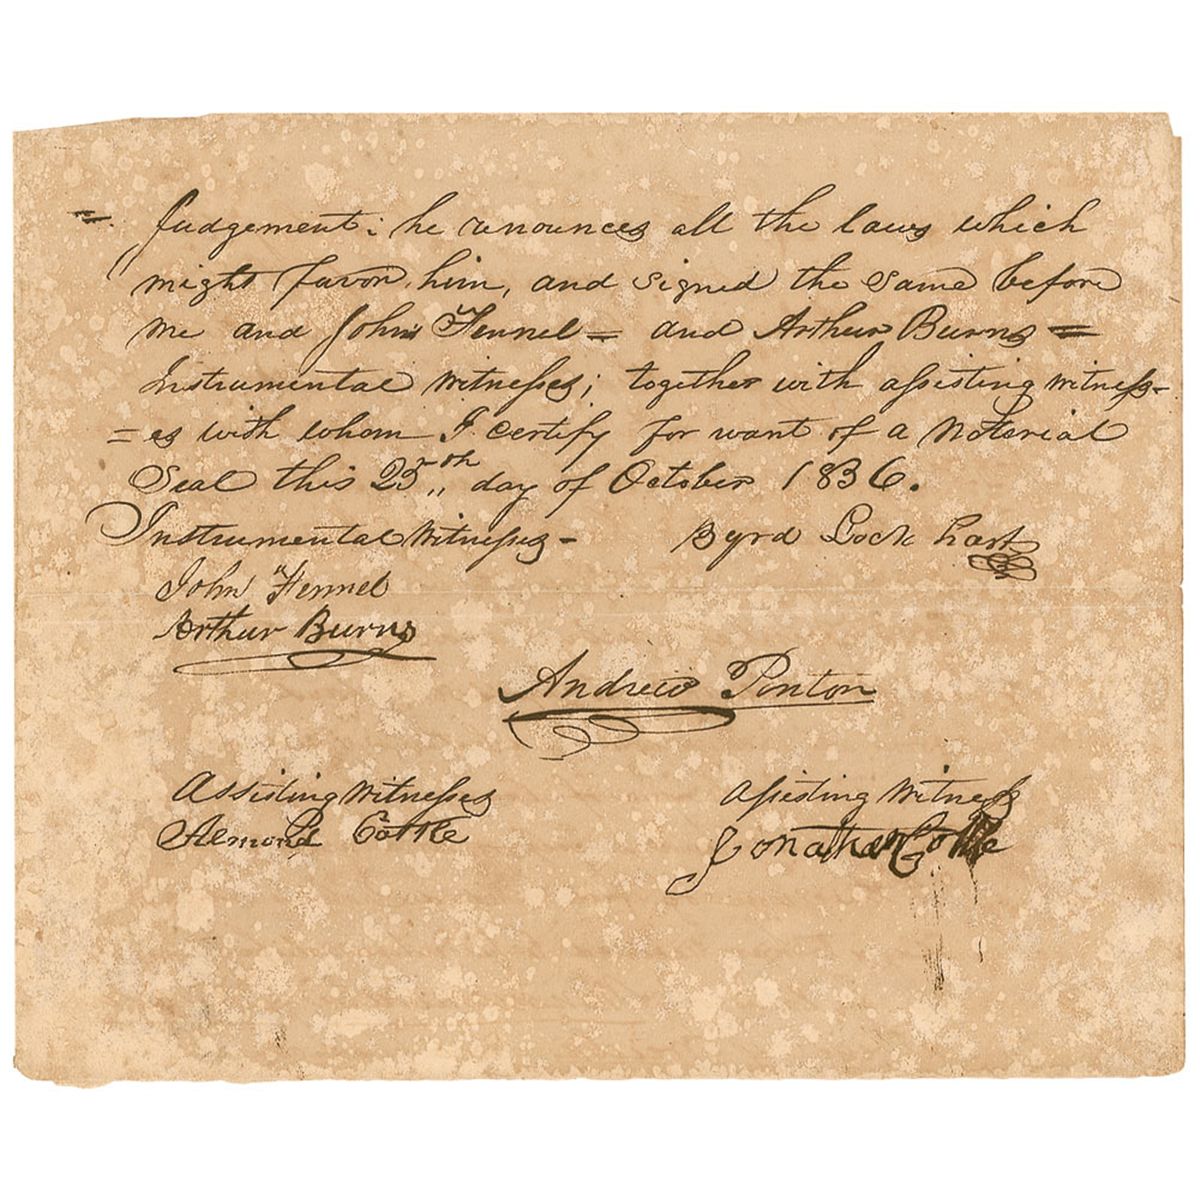 = Judgement; he renounces all the laws which
might favor him, and signed the same before
me and John Fennel = and Arthur Burns =
Instrumental Witnesses; together with assisting witness-
=es with whom I certify for want of a Notorial
Seal this 25th day of October 1836.
Instrumental Witnesses - Byrd Lockhart
John Fennel
Arthur Burns
Andrew Ponton
Assisting Witnesses Assisting Witness
Almond Cottle Jonathan Cottle